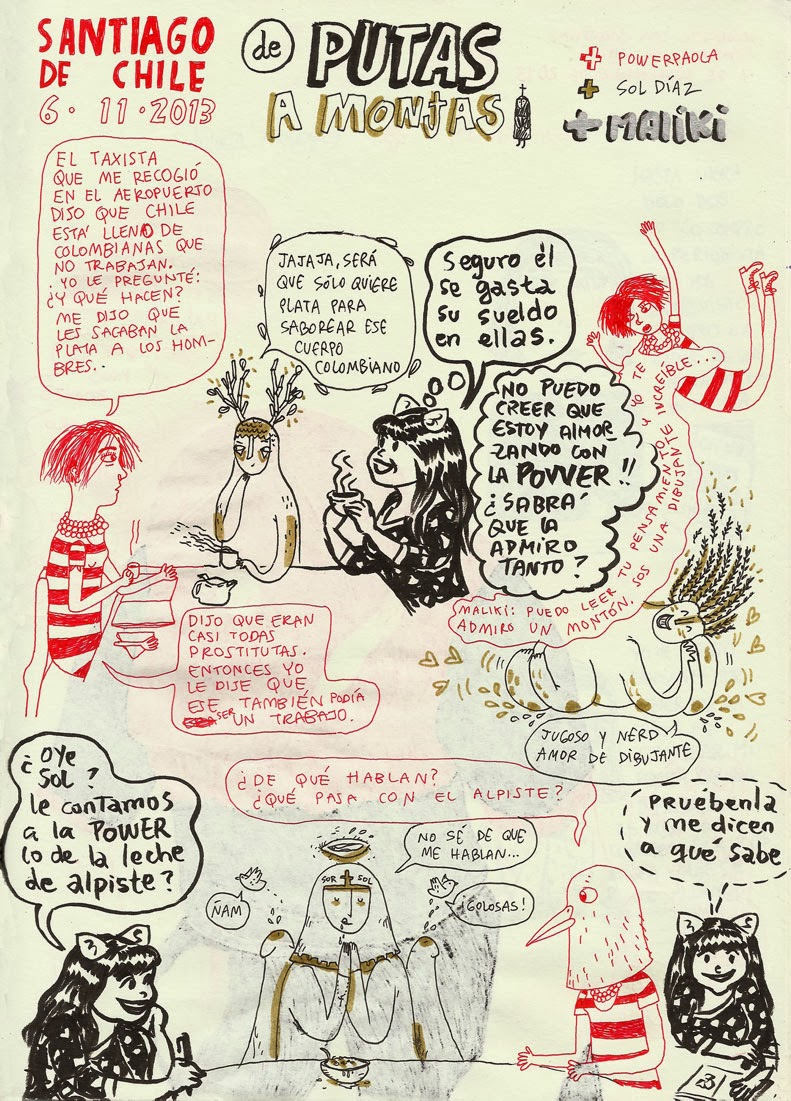 SANTIAGO
DE CHILE
6·11·2013
de PUTAS
A MONJAS
+ POWERPAOLA
+ SOL DÍAZ
+ MALIKI
EL TAXISTA
QUE ME RECOGIÓ
EN EL AEROPUERTO
DIJO QUE CHILE
ESTÁ LLENO DE
COLOMBIANAS QUE
NO TRABAJAN.
. YO LE PREGUNTÉ:
¿Y QUÉ HACEN?
ME DIJO QUE
LES SACABAN LA
PLATA A LOS HOM-
BRES..
JAJAJA, SERÁ
QUE SÓLO QUIERE
PLATA PARA
SABOREAR ESE
CUERPO
COLOMBIANO
Seguro él
se gasta
su sueldo
en ellas.
NO PUEDO
CREER QUE
ESTOY ALMOR
ZANDO CON
LA POWER!!
¿SABRÁ
QUE LA
ADMIRO
TANTO?
MALIKI: PUEDO LEER TU PENSAMIENTO Y YO TE
ADMIRO UN MONTÓN, SOS UNA DIBUJANTE INCREÍBLE...
DIJO QUE ERAN
CASI TODAS
PROSTITUTAS.
ENTONCES YO
LE DIJE QUE
ESE TAMBIÉN PODÍA
SER UN TRABAJO.
JUGOSO Y NERD
AMOR DE DIBUJANTE
¿Oye
SOL?
le contamos
a la POWER
lo de la leche
de alpiste?
¿DE QUÉ HABLAN?
¿QUÉ PASA CON EL ALPISTE?
NO SÉ DE QUE
ME HABLAN...
SOR SOL
ÑAM
¡GOLOSAS!
pruébenla
y me dicen
a qué sabe